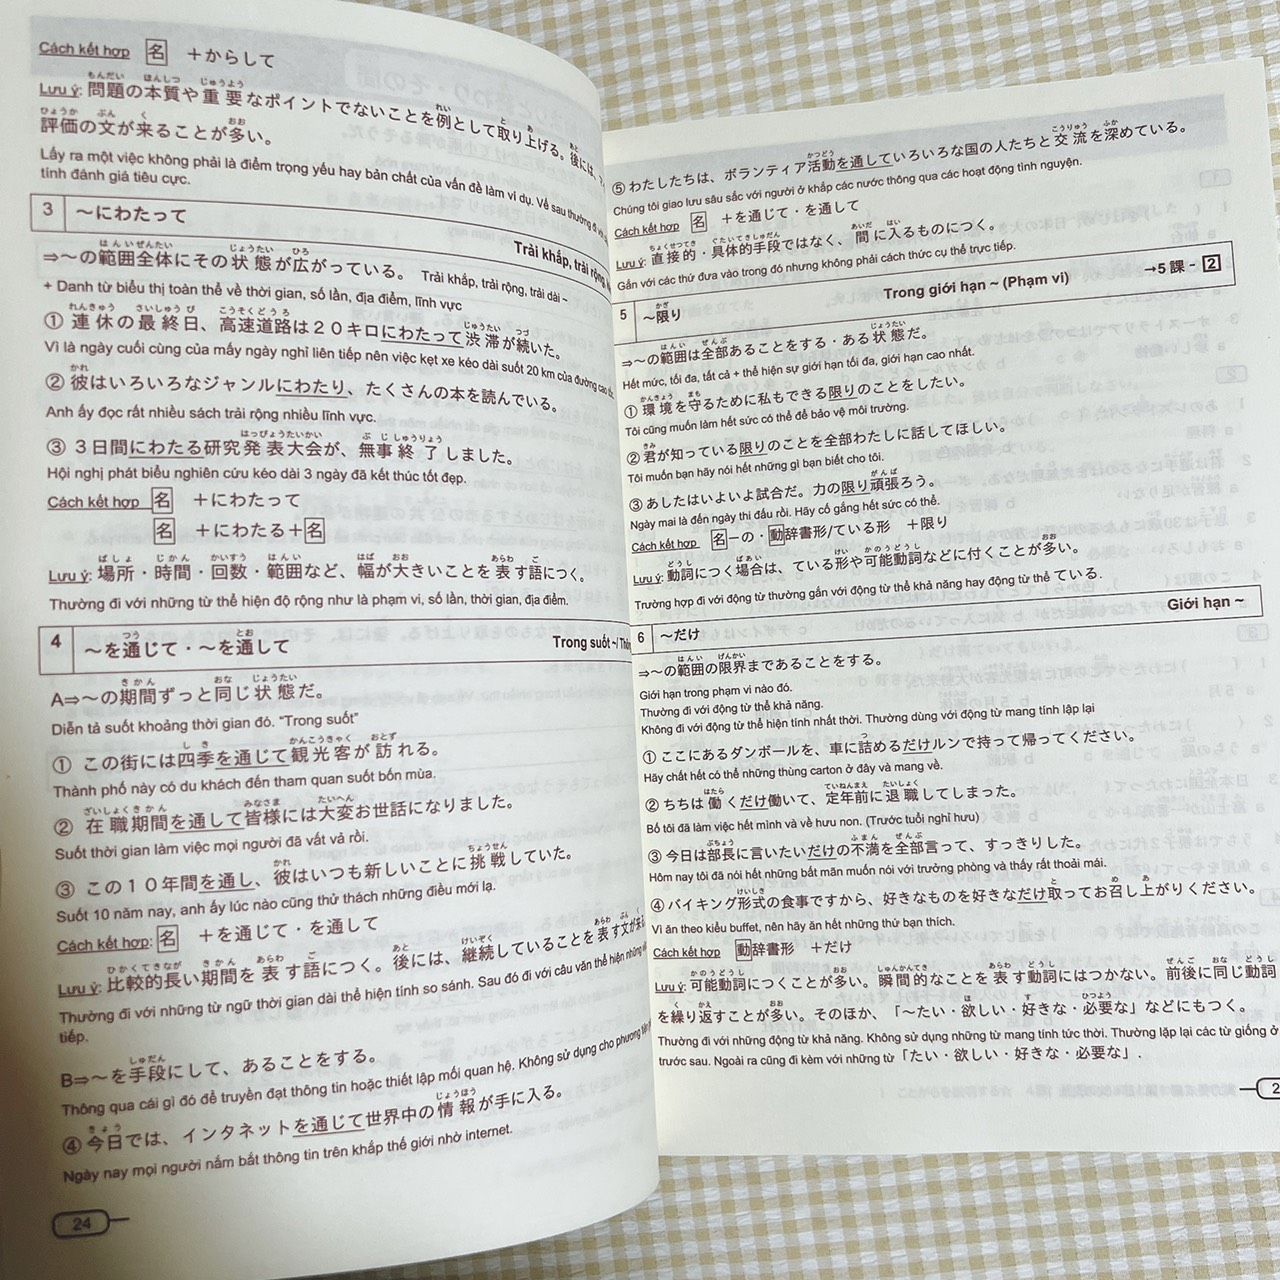 Cách kết hợp 名 ＋からして
Lưu ý: 問題の本質や重要なポイントでないことを例として取り上げる。後には、
評価の文が来ることが多い。
Lấy ra một việc không phải là điểm trọng yếu hay bản chất của vấn đề làm ví dụ. Về sau thường đi với
tính đánh giá tiêu cực.
3 ～にわたって Trải khắp, trải rộng,
⇒～の範囲全体にその状態が広がっている。 Trải khắp, trải rộng, trải dài ~
+ Danh từ biểu thị toàn thể về thời gian, số lần, địa điểm, lĩnh vực
① 連休の最終日、高速道路は２０キロにわたって渋滞が続いた。
Vì là ngày cuối cùng của mấy ngày nghỉ liên tiếp nên việc kẹt xe kéo dài suốt 20 km của đường cao
② 彼はいろいろなジャンルにわたり、たくさんの本を読んでいる。
Anh ấy đọc rất nhiều sách trải rộng nhiều lĩnh vực.
③ ３日間にわたる研究発表大会が、無事終了しました。
Hội nghị phát biểu nghiên cứu kéo dài 3 ngày đã kết thúc tốt đẹp.
Cách kết hợp 名 ＋にわたって
名 ＋にわたる＋名
Lưu ý: 場所・時間・回数・範囲など、幅が大きいことを表す語につく。
Thường đi với những từ thể hiện độ rộng như là phạm vi, số lần, thời gian, địa điểm.
4 ～を通じて・～を通して Trong suốt ~/
A⇒～の期間ずっと同じ状態だ。
Diễn tả suốt khoảng thời gian đó. “Trong suốt”
① この街には四季を通じて観光客が訪れる。
Thành phố này có du khách đến tham quan suốt bốn mùa.
② 在職期間を通して皆様には大変お世話になりました。
Suốt thời gian làm việc mọi người đã vất vả rồi.
③ この１０年間を通し、彼はいつも新しいことに挑戦していた。
Suốt 10 năm nay, anh ấy lúc nào cũng thử thách những điều mới lạ.
Cách kết hợp: 名 ＋を通じて・を通して
Lưu ý: 比較的長い期間を表す語につく。後には、継続していることを表す文が
Thường đi với những từ ngữ thời gian dài thể hiện tính so sánh. Sau đó đi với câu văn thể hiện những
tiếp.
B⇒～を手段にして、あることをする。
Thông qua cái gì đó để truyền đạt thông tin hoặc thiết lập mối quan hệ. Không sử dụng cho phương tiện
④ 今日では、インタネットを通じて世界中の情報が手に入る。
Ngày nay mọi người nắm bắt thông tin trên khắp thế giới nhờ internet.
24
⑤ わたしたちは、ボランティア活動を通していろいろな国の人たちと交流を深めている。
Chúng tôi giao lưu sâu sắc với người ở khắp các nước thông qua các hoạt động tình nguyện.
Cách kết hợp 名 ＋を通じて・を通して
Lưu ý: 直接的・具体的手段ではなく、間に入るものにつく。
Gắn với các thứ đưa vào trong đó nhưng không phải cách thức cụ thể trực tiếp.
5 ～限り Trong giới hạn ~ (Phạm vi) →5 課 - 2
⇒～の範囲は全部あることをする・ある状態だ。
Hết mức, tối đa, tất cả + thể hiện sự giới hạn tối đa, giới hạn cao nhất.
① 環境を守るために私もできる限りのことをしたい。
Tôi cũng muốn làm hết sức có thể để bảo vệ môi trường.
② 君が知っている限りのことを全部わたしに話してほしい。
Tôi muốn bạn hãy nói hết những gì bạn biết cho tôi.
③ あしたはいよいよ試合だ。力の限り頑張ろう。
Ngày mai là đến ngày thi đấu rồi. Hãy cố gắng hết sức có thể.
Cách kết hợp 名ーの・動辞書形/ている形 ＋限り
Lưu ý: 動詞につく場合は、ている形や可能動詞などに付くことが多い。
Trường hợp đi với động từ thường gắn với động từ thể khả năng hay động từ thể ている.
6 ～だけ Giới hạn ~
⇒～の範囲の限界まであることをする。
Giới hạn trong phạm vi nào đó.
Thường đi với động từ thể khả năng.
Không đi với động từ thể hiện tính nhất thời. Thường dùng với động từ mang tính lập lại
① ここにあるダンボールを、車に詰めるだけルンで持って帰ってください。
Hãy chất hết có thể những thùng carton ở đây và mang về.
② ちちは働くだけ働いて、定年前に退職してしまった。
Bố tôi đã làm việc hết mình và về hưu non. (Trước tuổi nghỉ hưu)
③ 今日は部長に言いたいだけの不満を全部言って、すっきりした。
Hôm nay tôi đã nói hết những bất mãn muốn nói với trưởng phòng và thấy rất thoải mái.
④ バイキング形式の食事ですから、好きなものを好きなだけ取ってお召し上がりください。
Vì ăn theo kiểu buffet, nên hãy ăn hết những thứ bạn thích.
Cách kết hợp 動辞書形 ＋だけ
Lưu ý: 可能動詞につくことが多い。瞬間的なことを表す動詞にはつかない。前後に同じ動詞
を繰り返すことが多い。そのほか、「～たい・欲しい・好きな・必要な」などにもつく。
Thường đi với những động từ khả năng. Không sử dụng những từ mang tính tức thời. Thường lặp lại các từ giống ở
trước sau. Ngoài ra cũng đi kèm với những từ「たい・欲しい・好きな・必要な」.